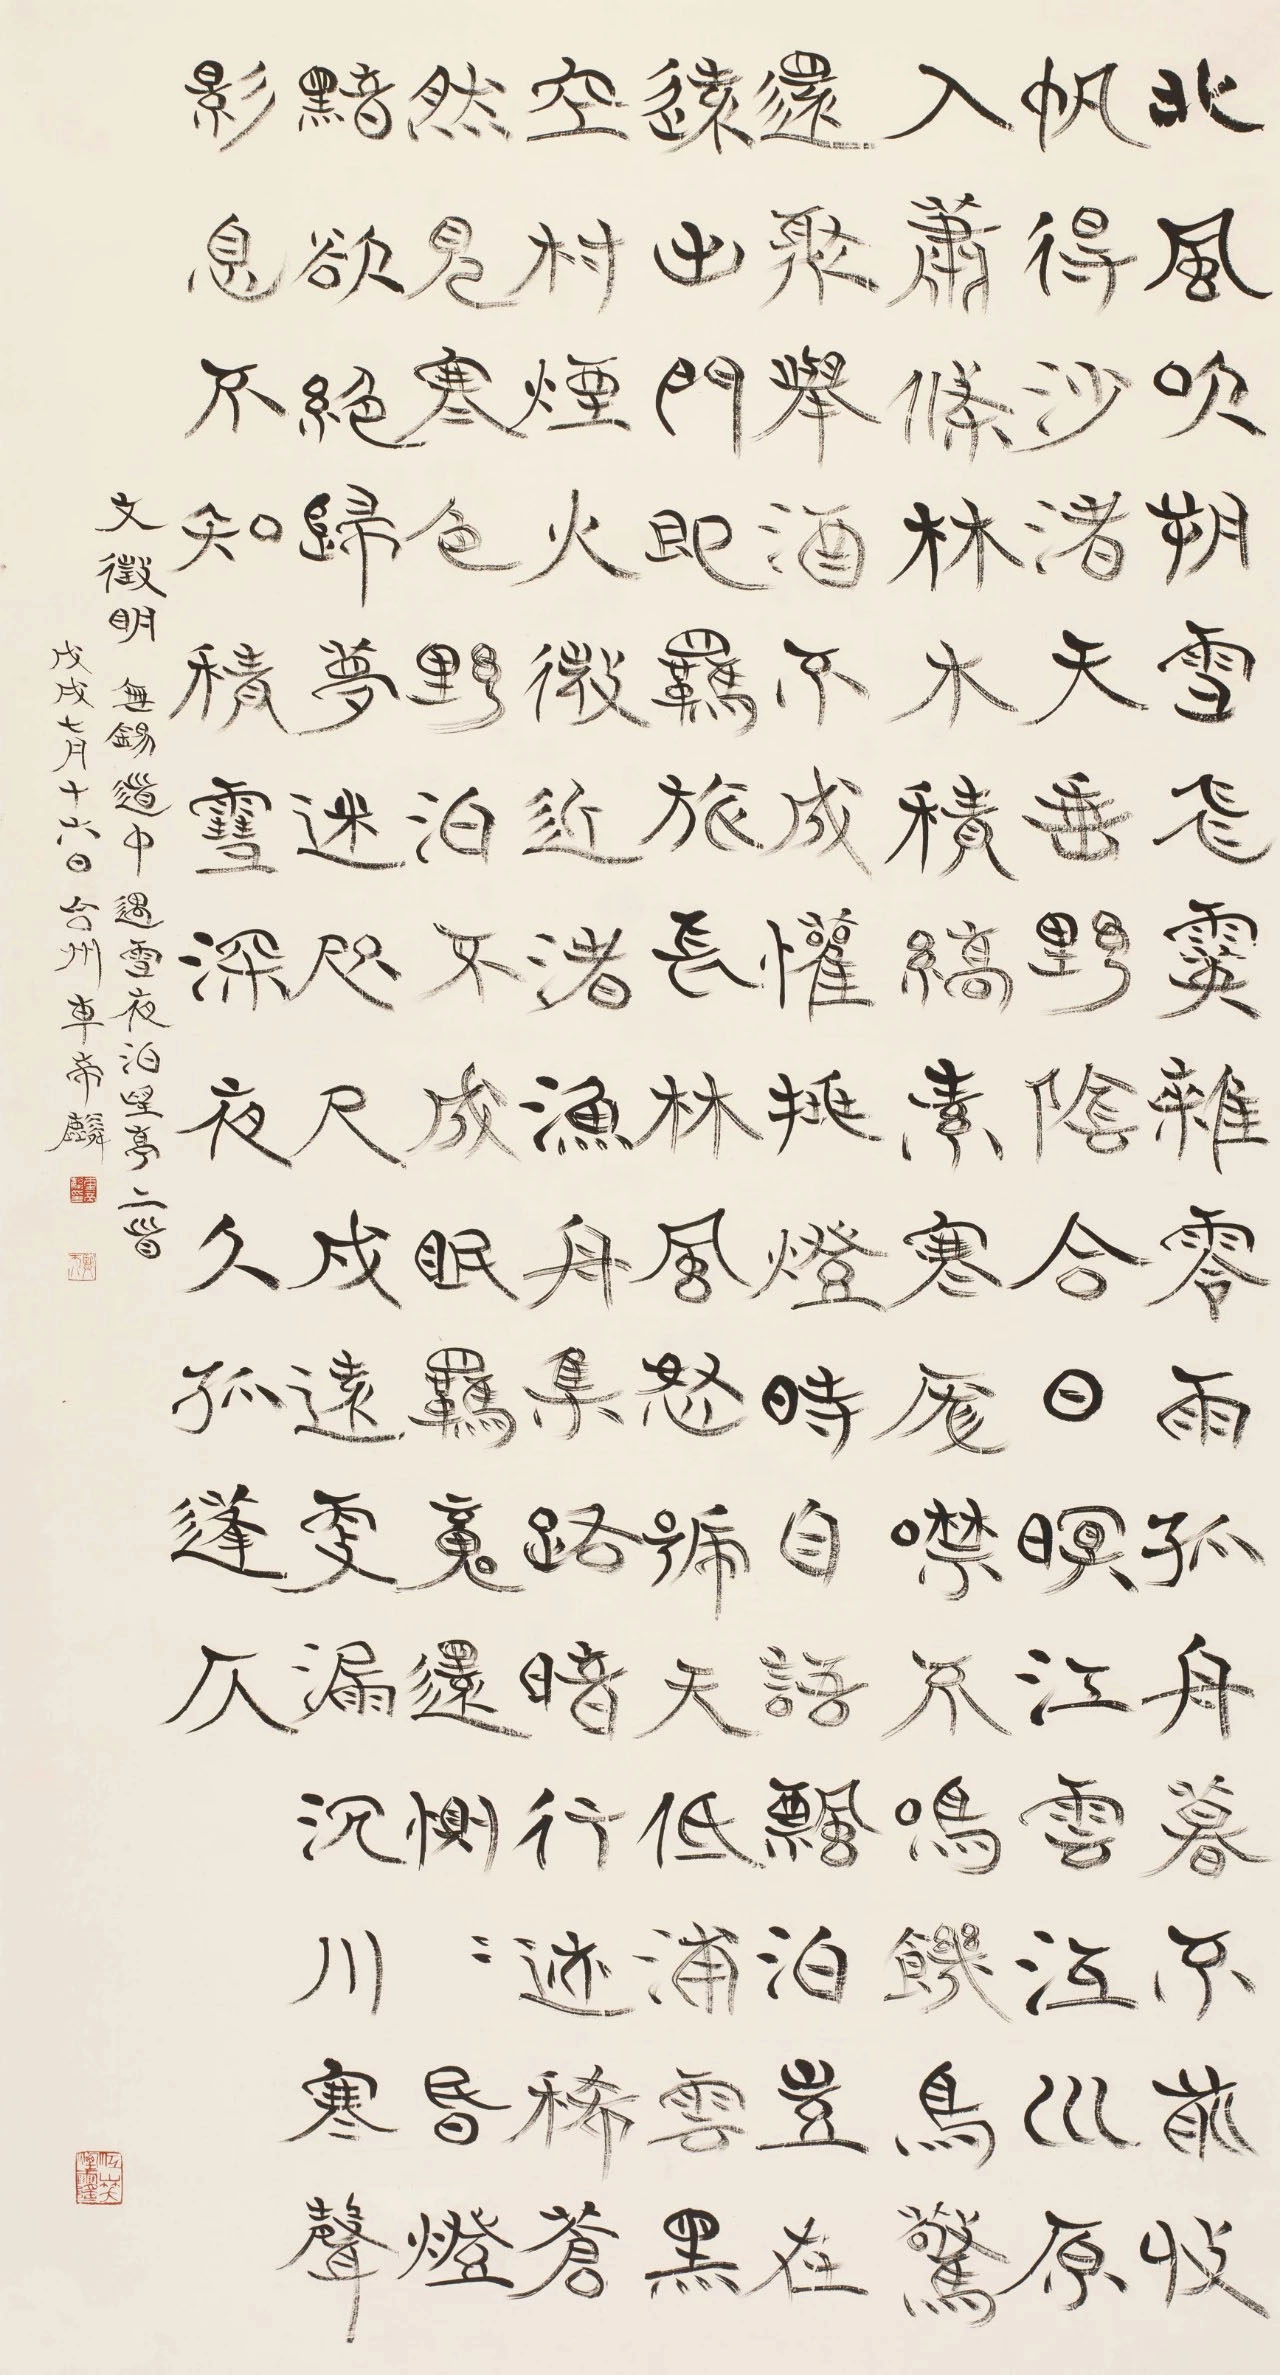 北風吹朔雪飛霙雜零雨孤舟暮不前收
帆得沙渚天垂野陰合日暝江雲江川原
入蕭條林木積縞素寒厖噤不鳴饑鳥驚
還聚舉酒不成懽挑燈時自語飄泊豈在
遠出門即羈旅長林風怒號天低浦雲黑
空村煙火微近渚漁舟集路暗行迹稀蒼
然見寒色野泊不成眠羈魂還惻〻昏燈
黯欲絕歸夢迷咫尺戍遠更漏沉川寒聲
影息不知積雪深夜久孤蓬仄
文徵明 無錫道中遇雪夜泊望亭二首
戊戌七月十六日台州車帝麟